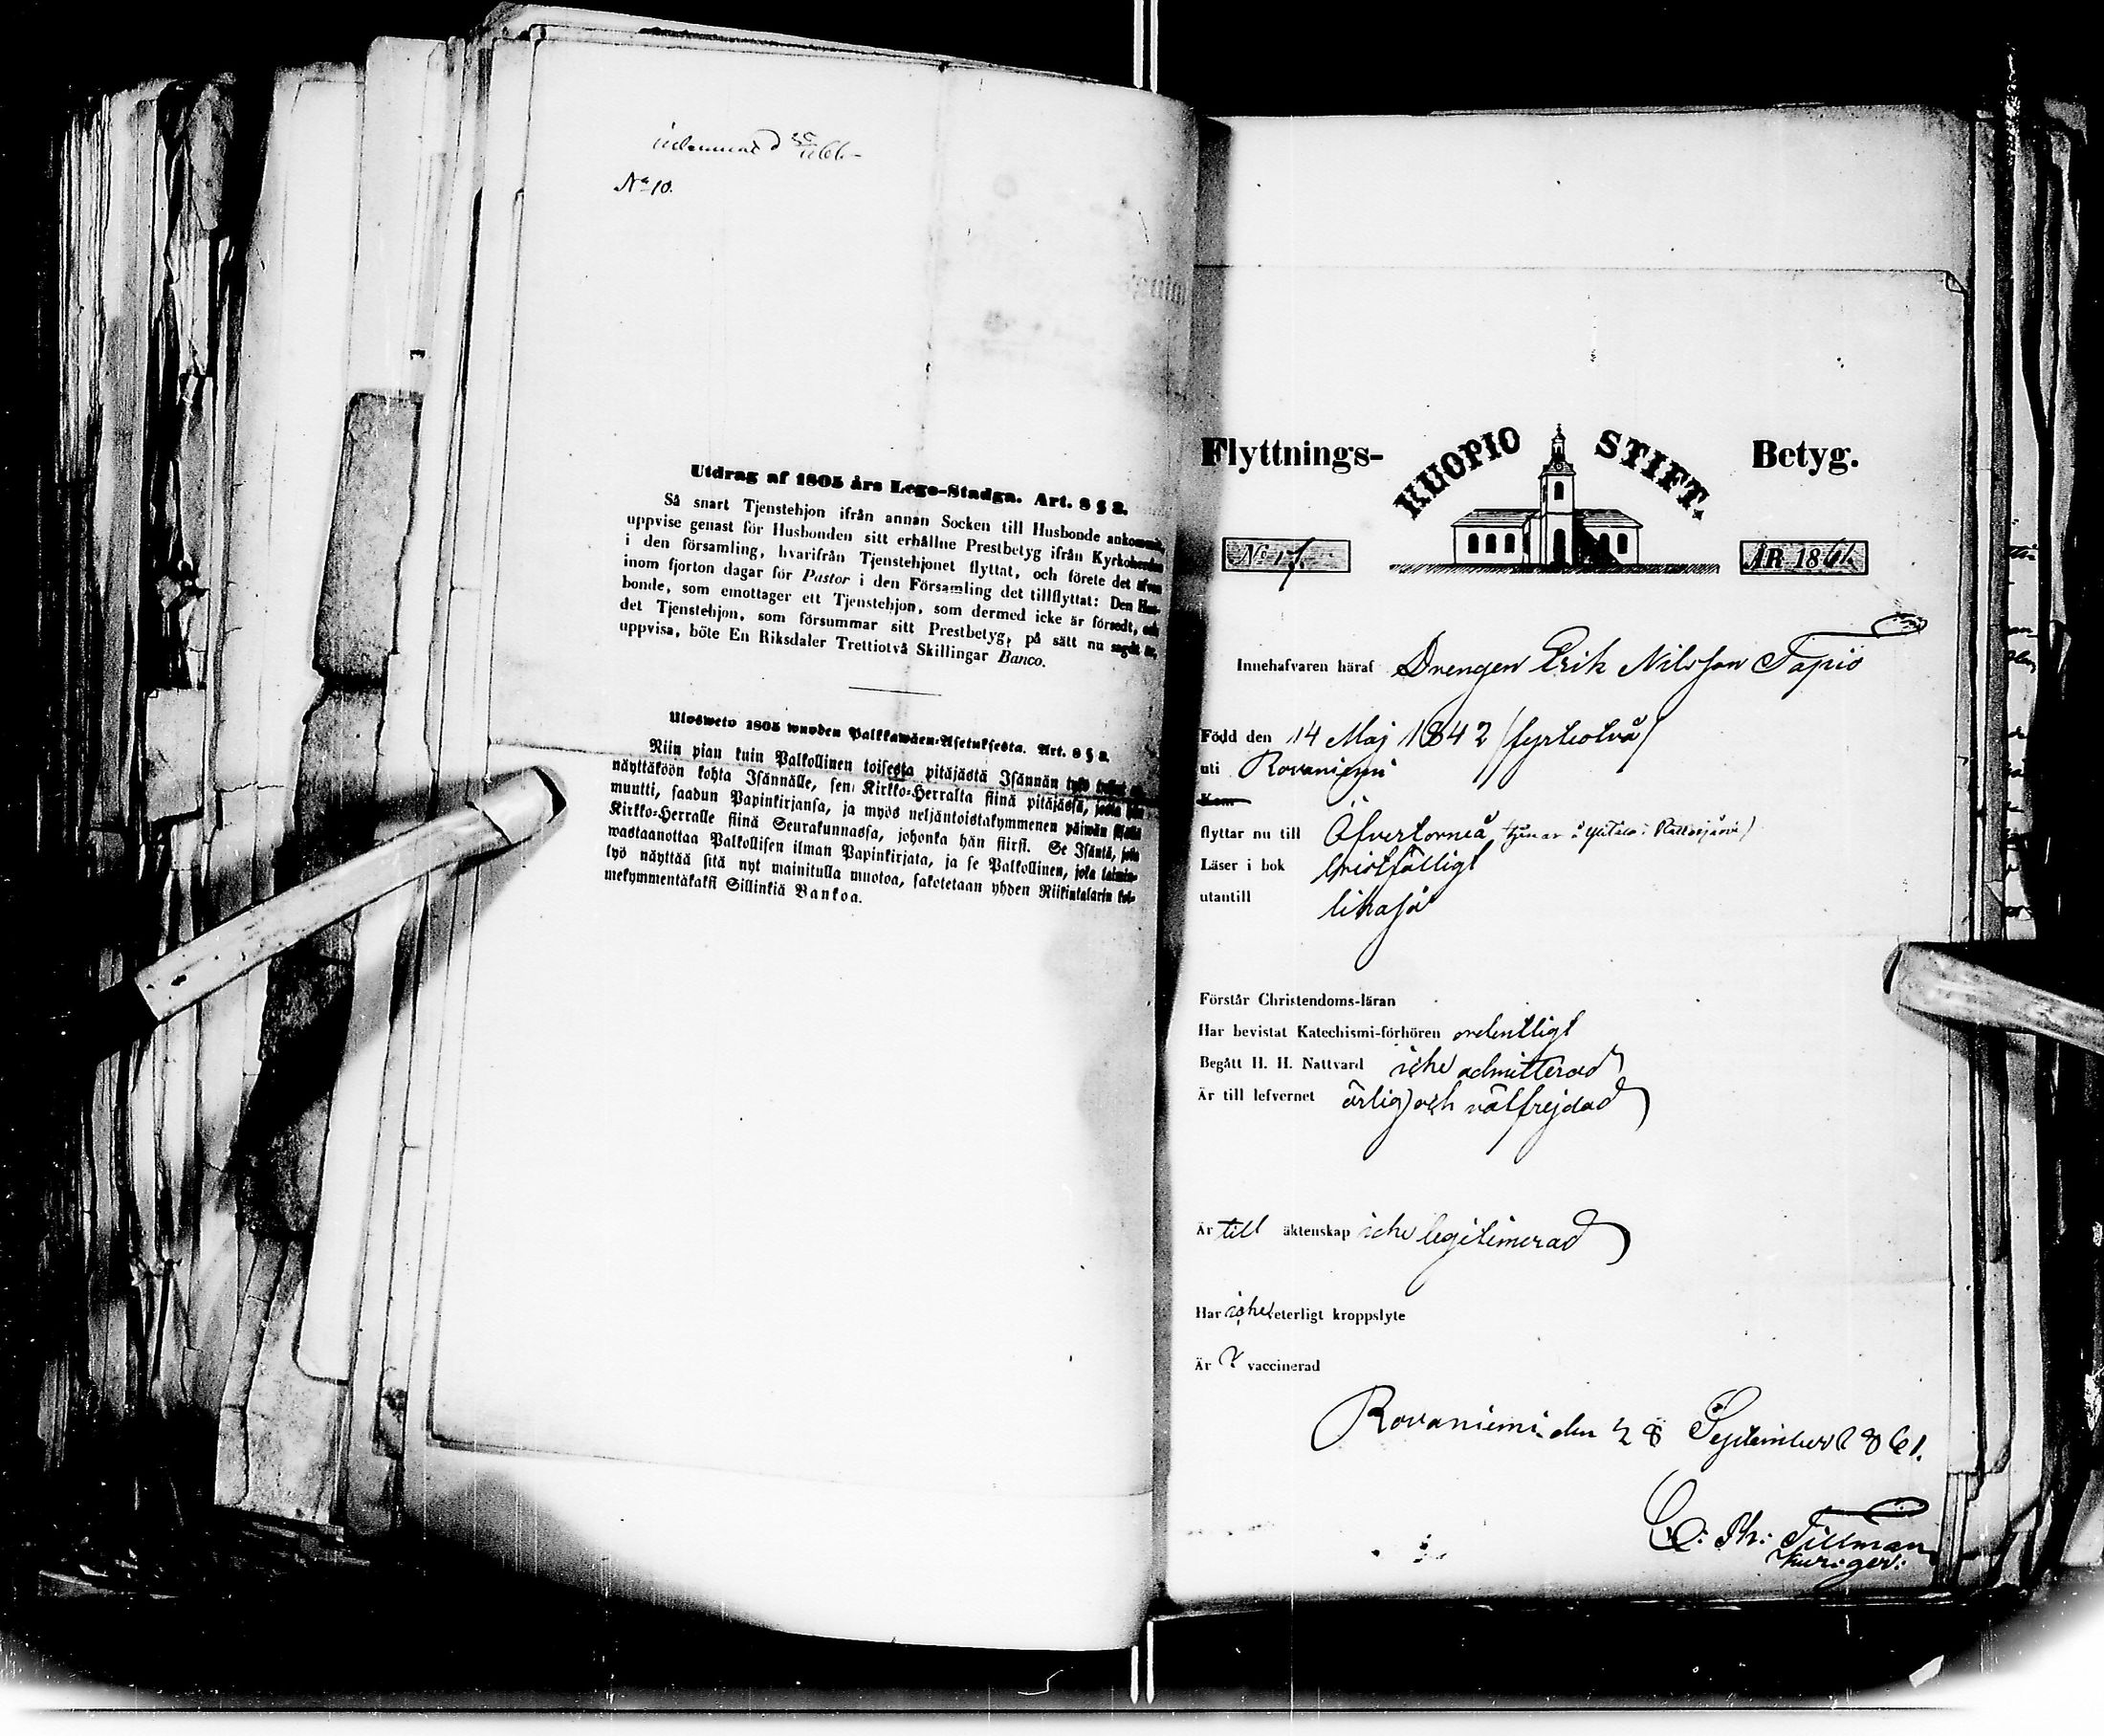 No 10.
Utdrag af 1805 års Lego-Stadga. Art. 8 § 2.
Så snart Tjenstehjon ifrån annan Socken till Husbonde ankommit,
uppvise genast för Husbonden sitt erhållne Prestbetyg ifrån Kyrkoherden
i den församling, hvarifrån Tjenstehjonet flyttat, och förete det äfven
inom fjorton dagar för Pastor i den Församling det tillflyttat: Den Hus-
bonde, som emottager ett Tjenstehjon, som dermed icke är försedt, och
det Tjenstehjon, som försummar sitt Prestbetyg, på sätt nu sagdt är,
uppvisa, böte En Riksdaler Trettiotvå Skillingar Banco.
Ulosweto 1805 wuoden Palkkawäen-Asetuksesta. Art. 8 § 2.
Niin pian kuin Palkollinen toisesta pitäjästä Isännän tykö
näyttäköön kohta Isännälle, sen Kirkko-Herralta siinä pitäjässä, josta hän
muutti, saadun Papinkirjansa, ja myös neljäntoistakymmenen päiwän sisällä
Kirkko-Herralle siinä Seurakunnassa, johonka hän siirsi. Se Isäntä, joka
wastaanottaa Palkollisen ilman Papinkirjata, ja se Palkollinen, joka laimin-
lyö näyttää sitä nyt mainitulla muotoa, sakotetaan yhden Riikintalarin kol-
mekymmentäkaksi Sillinkiä Bankoa.
Flyttnings- KUOPIO STIFT. Betyg.
No 17 ÅR 1861.
Innehafvaren häraf Drengen Erik Nilsson Tapio
Född den 14 Maj 1842 /fyrtiotvå/
uti Rovaniemi
Kom
flyttar nu till Öfvertorneå
Läser i bok bristfälligt
utantill likaså
Förstår Christendoms-läran
Har bevistat Katechismi-förhören ordentligt
Begått H. H. Nattvard icke admitterad
Är till lefvernet ärlig och välfrejdad
Är till äktenskap icke legitimerad
Har icke veterligt kroppslyte
Är ? vaccinerad
Rovaniemi den 28 September 1861.
Th: Tillman